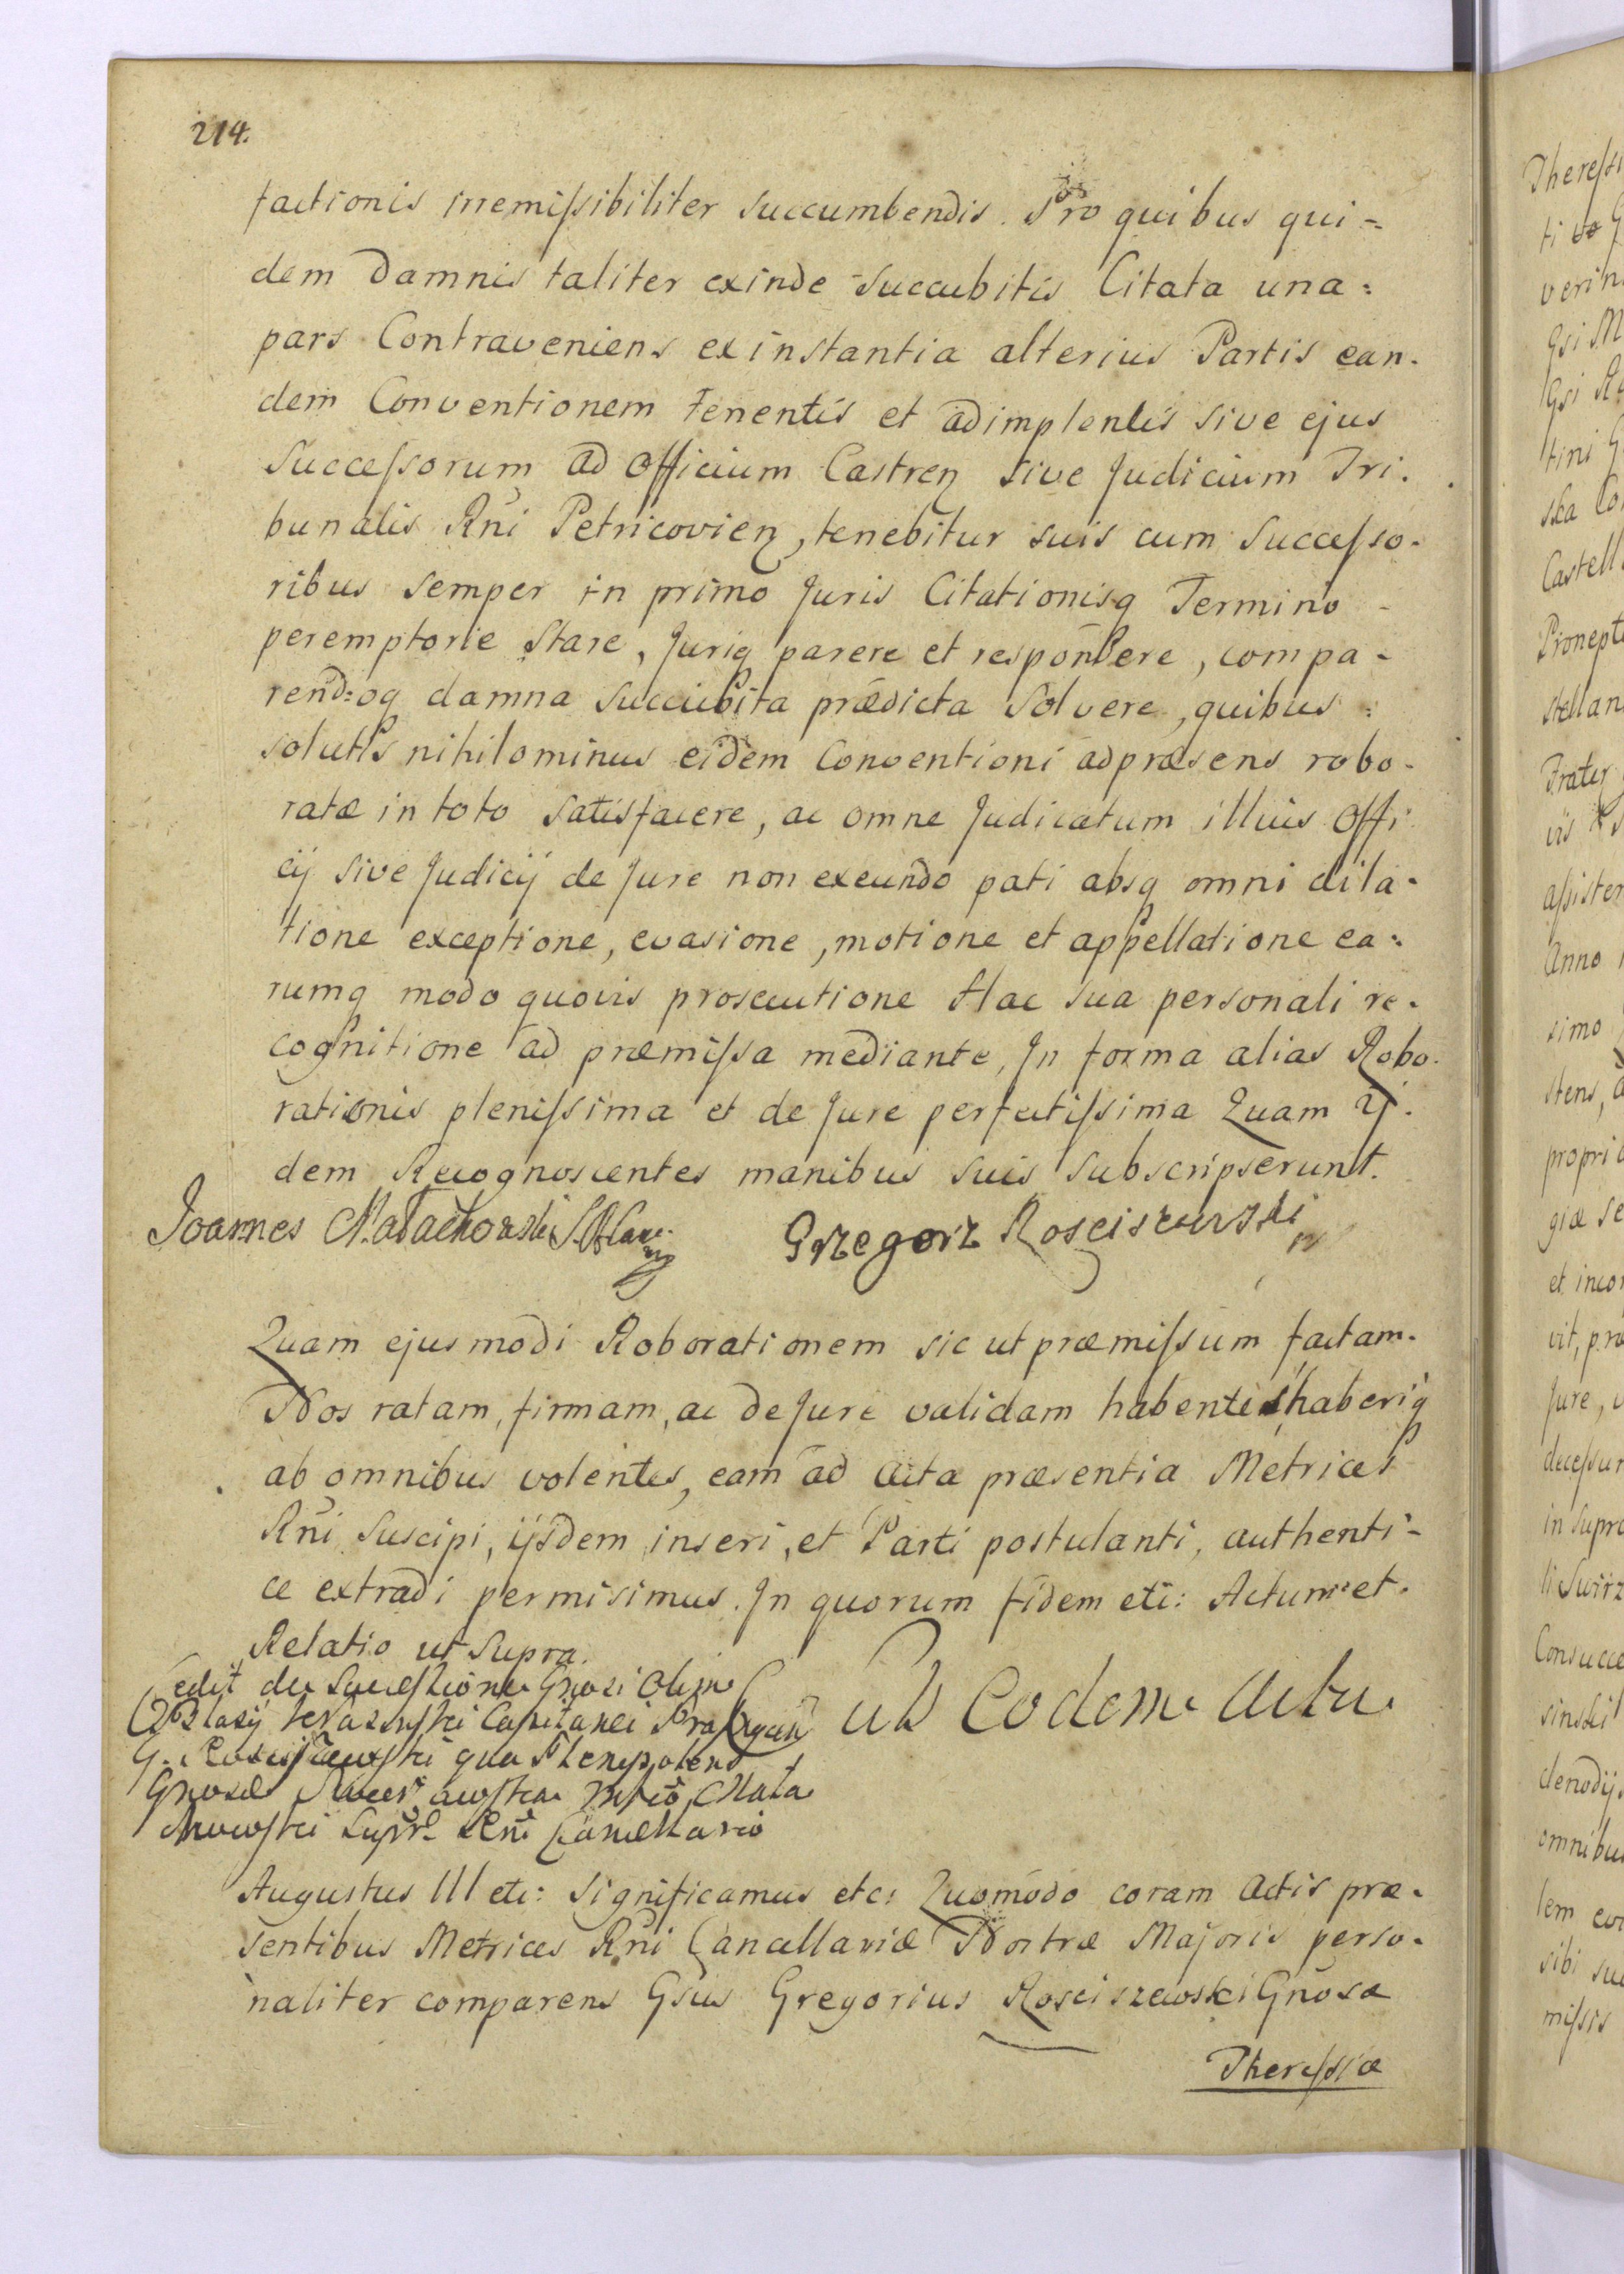 214.
factionis irremissibiliter succumbendis. Pro quibus qui=
dem damnis taliter exinde succubitis Citata una=
pars Contraveniens ex instantia alterius Partis ean-
dem Conventionem tenentis et adimplentis sive ejus
Successorum ad Officium Castren sive Judicium Tri.
bunalis Rni Petricovien, tenebitur suis cum Successo-
ribus semper in primo Juris Citationisq Termino -
peremptorie stare, Juriq parere et respondere, compa-
rend:oq damna succubita prædicta solvere, quibus :
solutis nihilominus eidem Conventioni ad præsens robo-
ratæ in toto satisfacere, ac omne Judicatum illius Offi
cij sive Judicij de Jure non exeundo pati absq omni dila-
tione exceptione, evasione, motione et appellatione ea:
rumq modo quovis prosecutione Hac sua personali re-
cognitione ad præmissa mediante, In forma alias Robo.
rationis plenissima et de Jure perfectissima Quam ij.
dem Recognoscentes manibus suis subscripserunt.
Joannes Małachowski Grzegorz Rosciszewski
Quam ejusmodi Roborationem sic ut præmissum factam.
Nos ratam, firmam, ac de Jure validam habentes, haberiq
ab omnibus volentes, eam ad Acta præsentia Metrices
Rni suscipi, ijsdem inseri, et Parti postulanti, authenti-
ce extradi permisimus. In quorum fidem etc: Actum et.
Relatio ut Supra.
Cedit de Successione Gnosi Olim
Blasij Krasinski Capitanei Prasnycen
G. Rosciszewski qua Plenipotens
Gnosæ
Mała
chowski Supr Rni Cancellario
Ut Eodem Actu
Augustus III etc: Significamus etc: Quomodo coram Actis præ-
sentibus Metrices Rni Cancellariæ Nostræ Majoris perso-
naliter comparens Gsus Gregorius Rosciszewski Gnosæ
Theressiæ